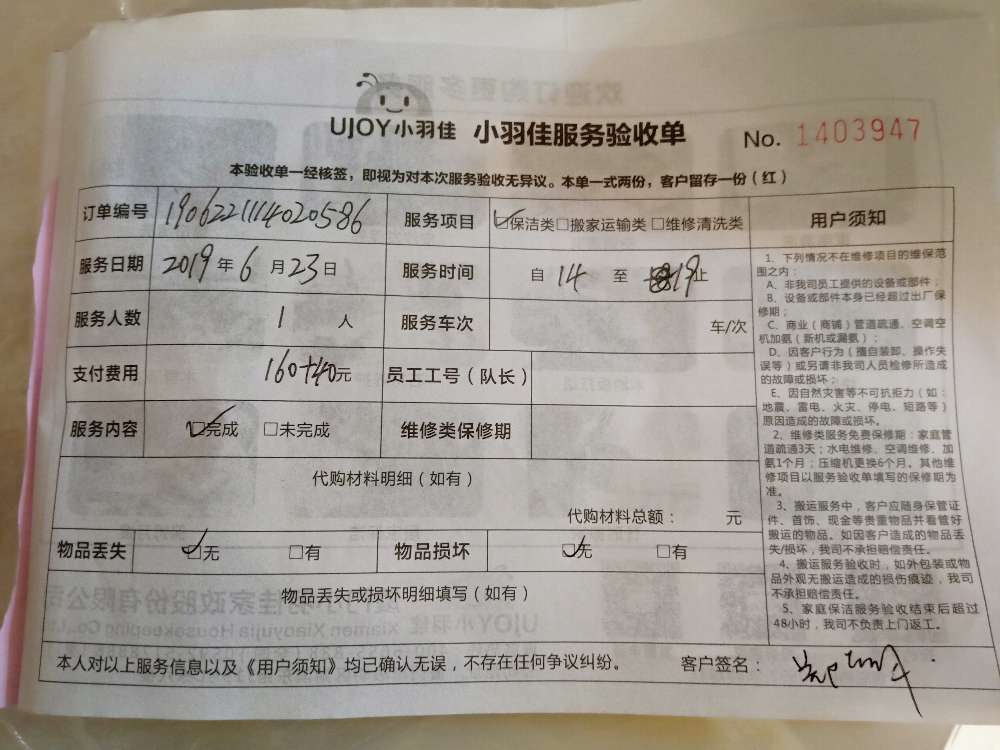 UJOY小羽佳 小羽佳服务验收单 No. 1403947
本验收单一经核签，即视为对本次服务验收无异议。本单一式两份，客户留存一份（红）
订单编号 1906221114020586 服务项目 ☑保洁类☐搬家运输类☐维修清洗类
服务日期 2019年6月23日 服务时间 自 14 至 19止
服务人数 1 人 服务车次 车/次
支付费用 160+40元 员工工号（队长）
服务内容 ☑完成 ☐未完成 维修类保修期
代购材料明细（如有）
代购材料总额： 元
物品丢失 ☑无 ☐有 物品损坏 ☑无 ☐有
物品丢失或损坏明细填写（如有）
本人对以上服务信息以及《用户须知》均已确认无误，不存在任何争议纠纷。 客户签名：
用户须知
1、下列情况不在维修项目的维保范
围之内：
A、非我司员工提供的设备或部件；
B、设备或部件本身已经超过出厂保
修期；
C、商业（商铺）管道疏通、空调空
机加氨（新机或漏氨）；
D、因客户行为（擅自装卸、操作失
误等）或另请非我司人员检修所造成
的故障或损坏；
E、因自然灾害等不可抗拒力（如：
地震、雷电、火灾、停电、短路等）
原因造成的故障或损坏。
2、维修类服务免费保修期：家庭管
道疏通3天；水电维修、空调维修、加
氨1个月；压缩机更换6个月。其他维
修项目以服务验收单填写的保修期为
准。
3、搬运服务中，客户应随身保管证
件、首饰、现金等贵重物品并看管好
搬运的物品。如因客户造成的物品丢
失/损坏，我司不承担赔偿责任。
4、搬运服务验收时，如外包装或物
品外观无搬运造成的损伤痕迹，我司
不承担赔偿责任。
5、家庭保洁服务验收结束后超过
48小时，我司不负责上门返工。